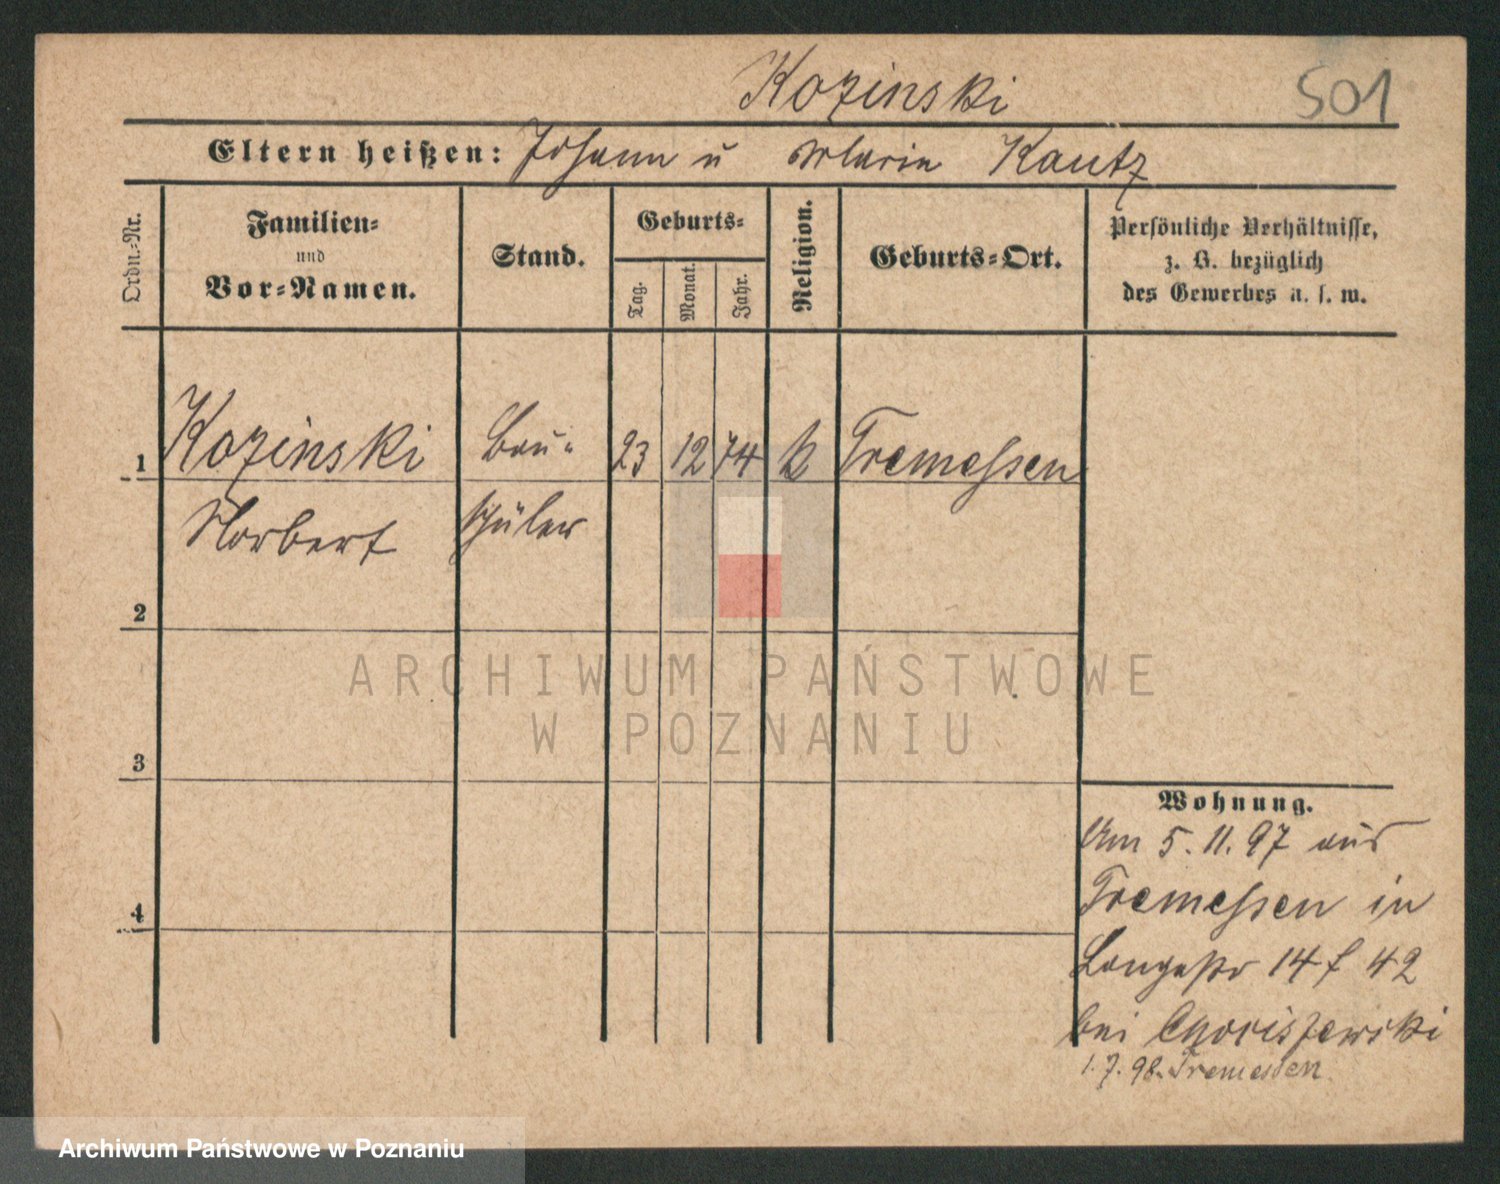 Kozinski 501
Eltern heißen: Johann u Maria Kautz
Ordn.-Nr.
Familien-
und
Vor-Namen.
Stand.
Geburts-
Tag.
Monat.
Jahr.
Religion.
Geburts-Ort.
Persönliche Verhältnisse,
z. B. bezüglich
des Gewerbes u. s. w.
1 Kozinski Bau- 23 12 74 k Tremessen
Norbert schüler
2
3
4
Wohnung.
Am 5. 11. 97 aus
Tremessen in
Langestr 14 42
bei
1. 7. 98. Tremessen
ARCHIWUM PAŃSTWOWE
W POZNANIU
Archiwum Państwowe w Poznaniu